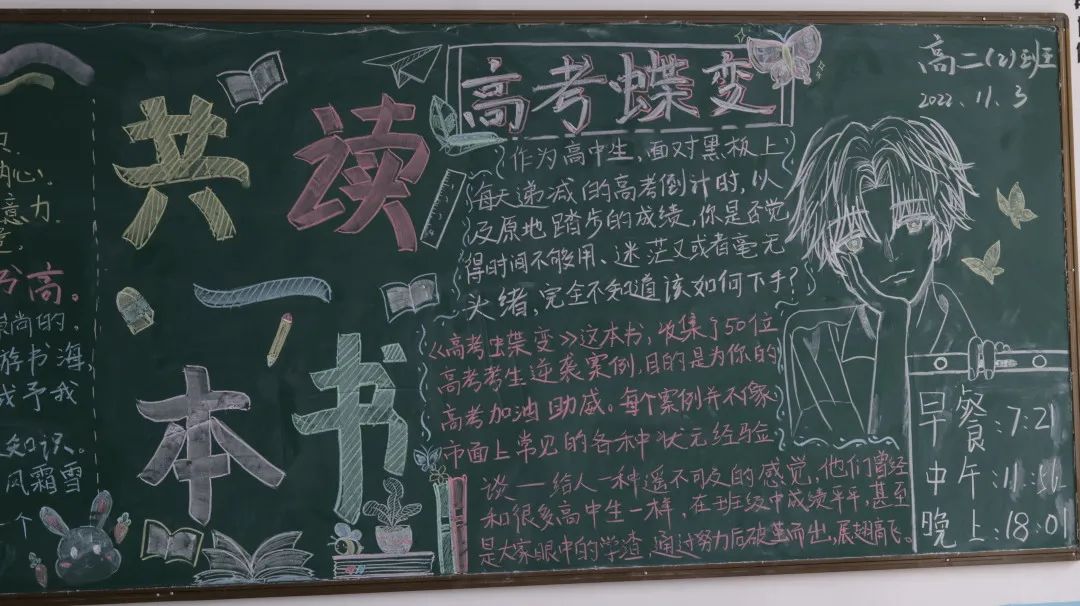 内心.
意力.
书高。
高尚的。
游书海,
我予我
知识。
风霜雪
一个
共读
一
本书
高考蝶变
作为高中生,面对黑板上
每天递减的高考倒计时,以
及原地踏步的成绩,你是否觉
得时间不够用、迷茫又或者毫无
头绪,完全不知道该如何下手?
《高考蝶变》这本书,收集了50位
高考考生逆袭案例,目的是为你的
高考加油助威。每个案例并不像
市面上常见的各种状元经验
谈一给人一种遥不可及的感觉,他们曾经
和很多高中生一样,在班级中成绩平平,甚至
是大家眼中的学渣,通过努力后破茧而出,展翅高飞。
高二(2)班
2022.11.3
早餐:7:21
中午:11:56
晚上:18:01